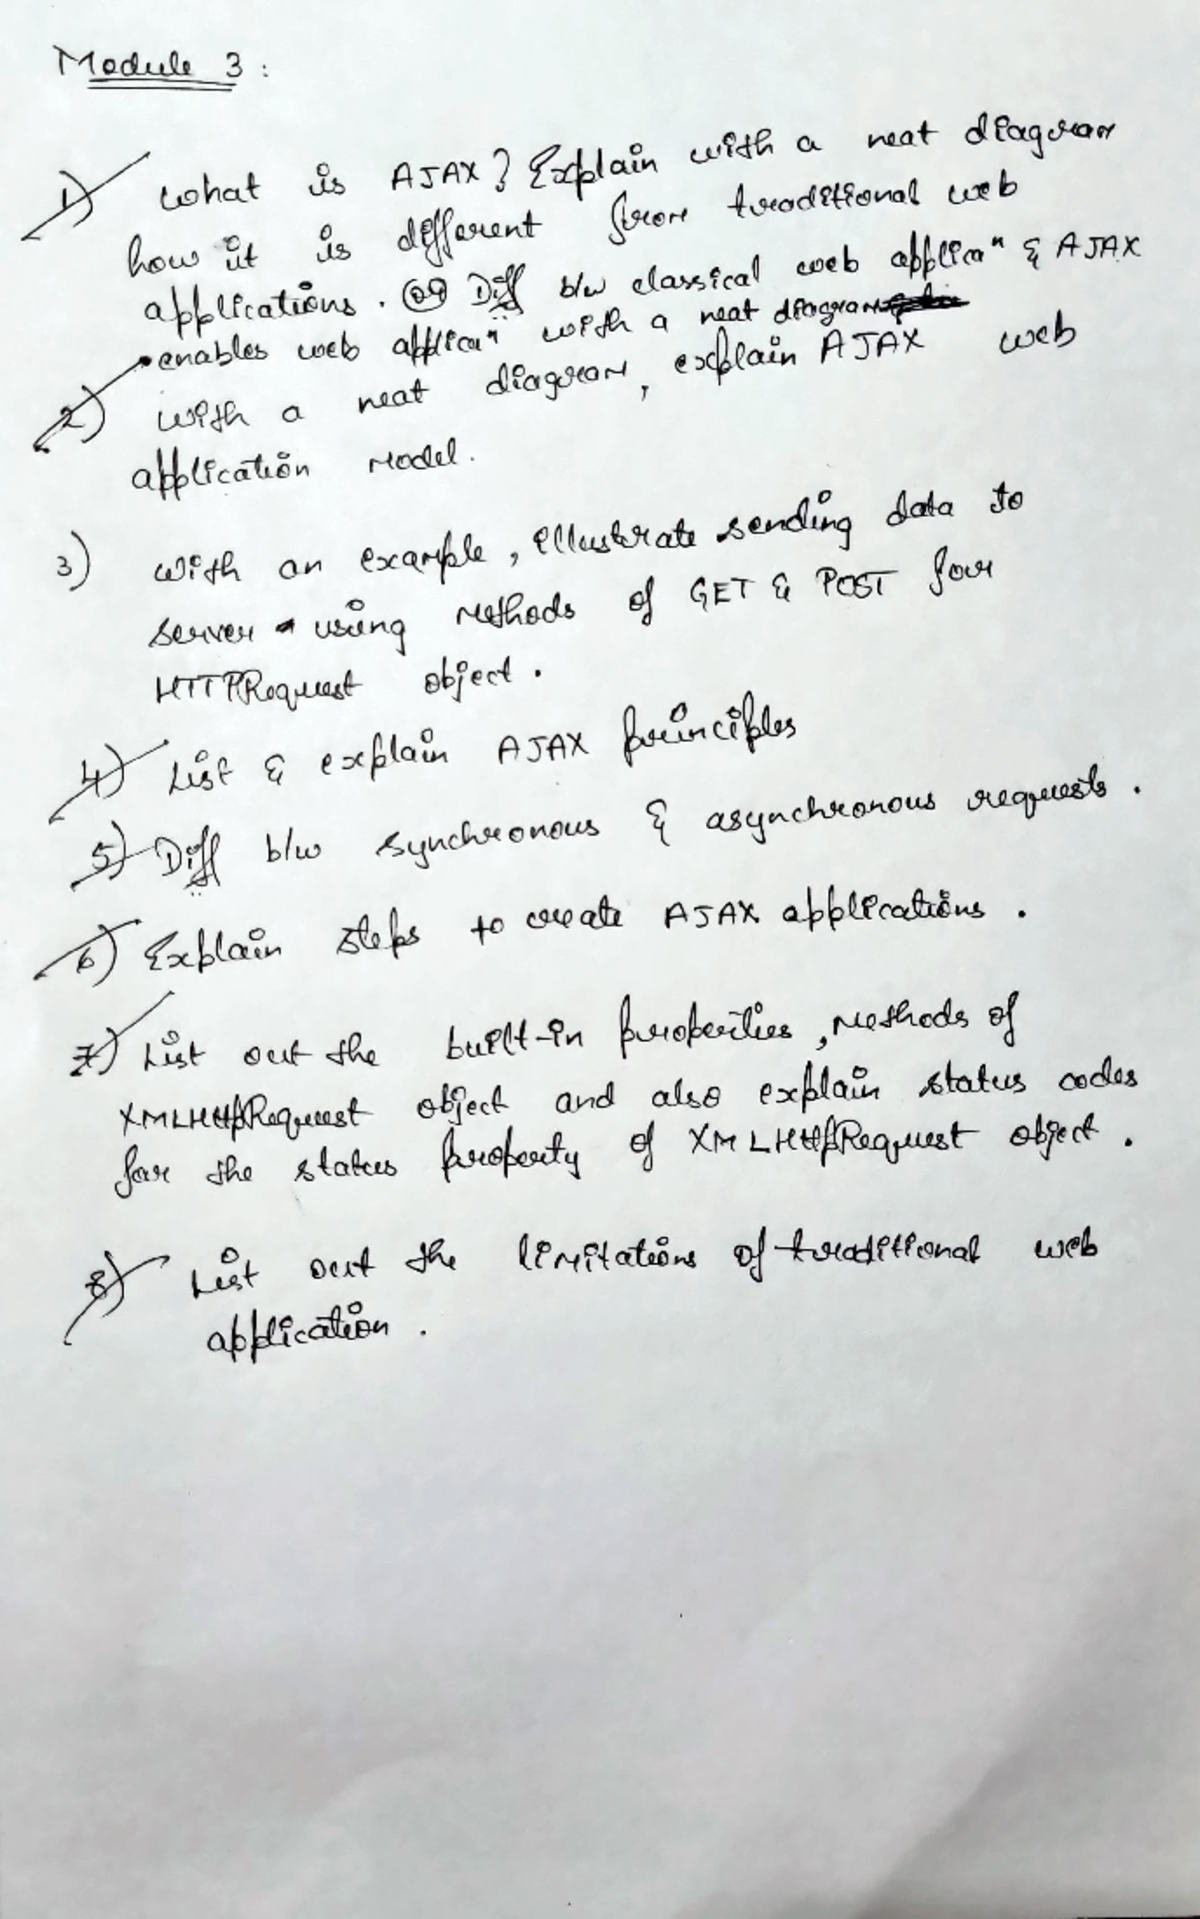 Module 3 :
1) what is AJAX? Explain with a neat diagram
how it is different from traditional web
applications. (OR) Diff b/w classical web applicaⁿ & AJAX
enables web applicaⁿ with a neat diagram
2) with a neat diagram, explain AJAX web
application model.
3) with an example, illustrate sending data to
server using methods of GET & POST for
HTTPRequest object.
4) List & explain AJAX principles
5) Diff b/w synchronous & asynchronous requests.
6) Explain steps to create AJAX applications.
7) List out the built-in properties, methods of
XMLHttpRequest object and also explain status codes
for the status property of XMLHttpRequest object.
8) List out the limitations of traditional web
application.